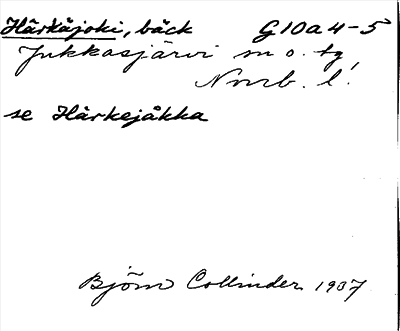 Härkäjoki, bäck G10a4-5
Jukkasjärvi sn o. tg
Nrrb. l.
se Härkejåkka
Björn Collinder 1937